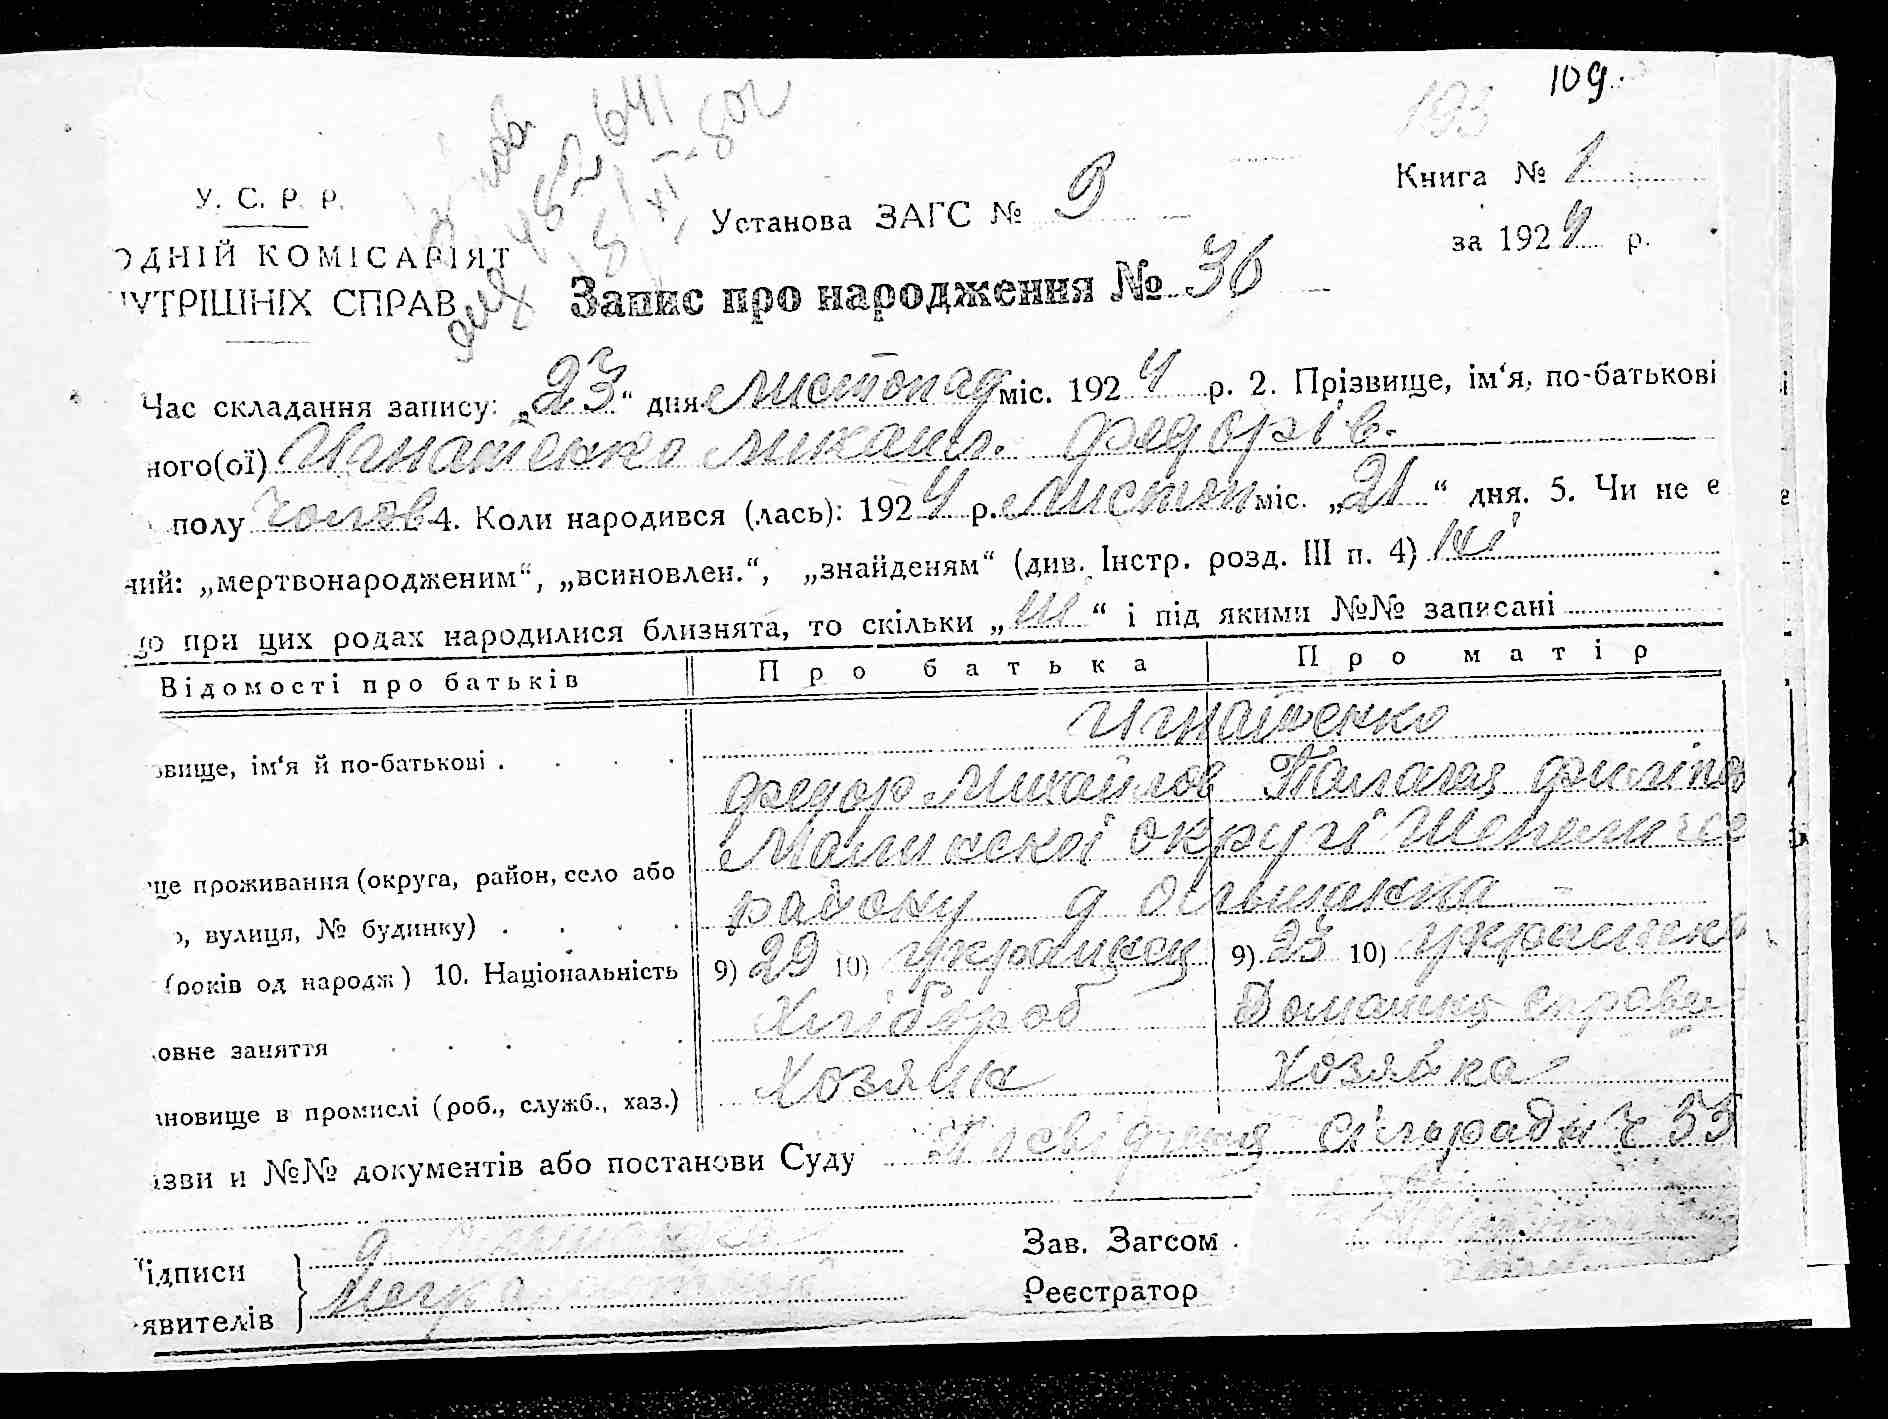 109.
193
У. С. Р. Р.
ОДНІЙ КОМІСАРІЯТ
НУТРІШНІХ СПРАВ
Установа ЗАГС № 9
Книга № 1
за 1924 р.
Запис про народження № 36
Час складання запису: „23“ дня листопад міс. 1924 р. 2. Прізвище, ім‘я, по-батькові
ного(ої) Игнатенко Михаил. Федорів.
полу чолов 4. Коли народився (лась): 1924 р. листоп міс. „21“ дня. 5. Чи не є
ний: „мертвонародженим“, „всиновлен.“, „знайденям“ (див. Інстр. розд. III п. 4) ні
що при цих родах народилися близнята, то скільки „ні“ і під якими №№ записані
Відомості про батьків Про батька Про матір
Игнатенко
звище, ім‘я й по-батькові
Федор Михайлов
ще проживання (округа, район, село або
округі
о, вулиця, № будинку)
району
(років од народж) 10. Національність 9) 29 10) Украинец 9) 23 10) Украинк
овне заняття Хлібороб Домашня справи
ановище в промислі (роб., служб., хаз.) Хозяин Хозяйка
азви и №№ документів або постанови Суду Посвідченя Сільради ч 55
Підписи
явителів
Зав. Загсом
Реєстратор